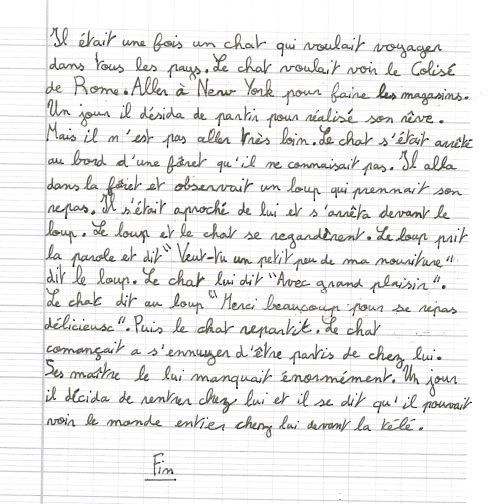 Il était une fois un chat qui voulait voyager
dans tous les pays. Le chat voulait voir le Colisé
de Rome. Aller à New York pour faire les magasins.
Un jour il désida de partir pour réalisé son rêve.
Mais il n'est pas aller très loin. Le chat s'était arrêté
au bord d'une fôret qu'il ne connaisait pas. Il alla
dans la fôret et observait un loup qui prennait son
repas. Il s'était aproché de lui et s'arrêta devant le
loup. Le loup et le chat se regardèrent. Le loup prit
la parole et dit "Veut-tu un petit peu de ma nouriture"
dit le loup. Le chat lui dit "Avec grand plaisir".
Le chat dit au loup "Merci beaucoup pour se repas
délicieuse". Puis le chat repartit. Le chat
comançait a s'ennuyer d'être partis de chez lui.
Ses maître le lui manquait énormément. Un jour
il décida de rentrer chez lui et il se dit qu'il pouvait
voir le monde entier chez lui devant la télé.
Fin